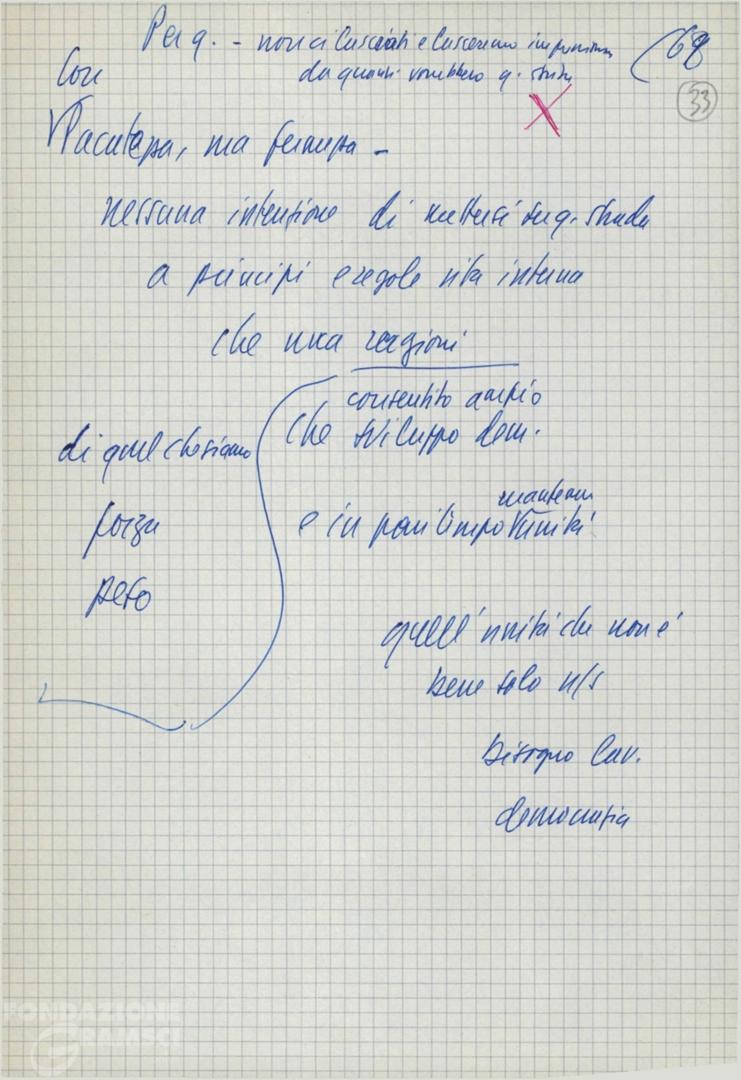 Per q. - non ci lasciati e lasceremo impression
da quanti vorrebbero q. strada
(68
33
Con
Pacatezza, ma fermezza -
nessuna intenzione di metterci su q. strada
a principi e regole vita interna
che una ragioni
consentito ampio
che sviluppo dem.
di quel che siamo
forza
peso
mantenere
e in pari tempo l'unità
quell'unità che non è
bene solo n/s
Bisogno lav.
democrazia
FONDAZIONE
GRAMSCI